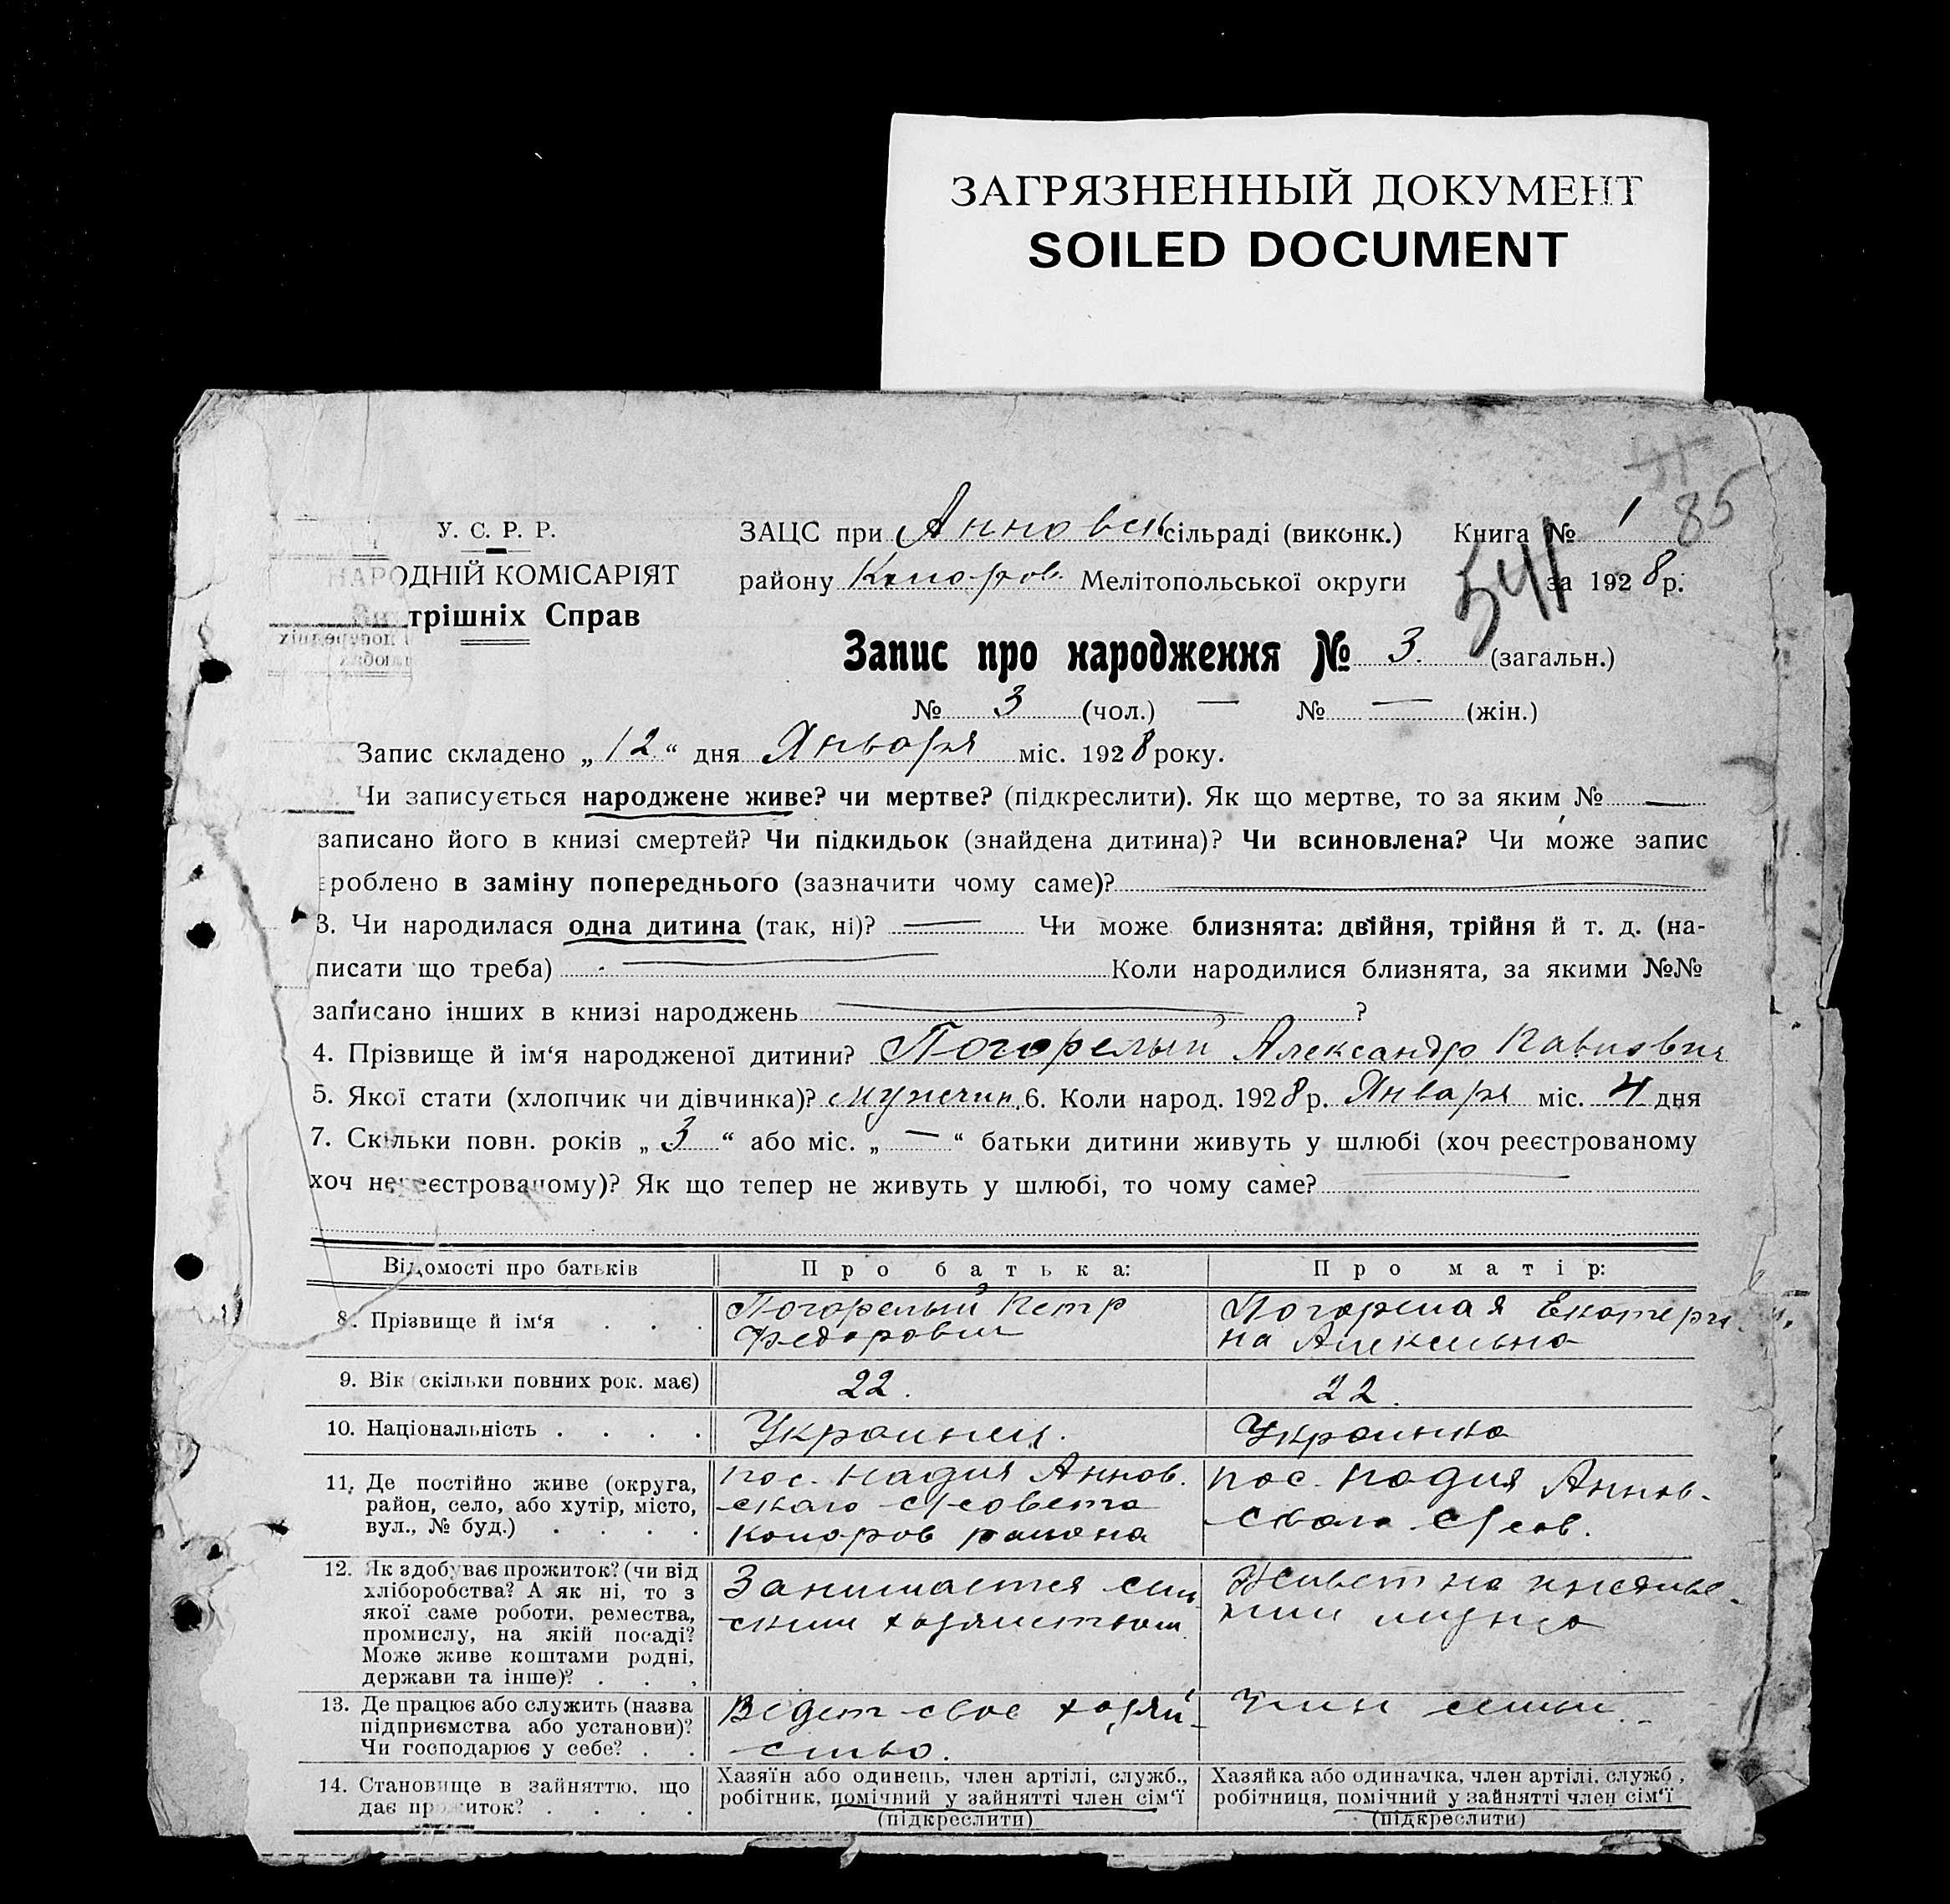 ЗАГРЯЗНЕННЫЙ ДОКУМЕНТ
SOILED DOCUMENT
85
У. С. Р. Р.
НАРОДНІЙ КОМІСАРІЯТ
трішніх Справ
ЗАЦС при Анновск сільраді (виконк.) Книга № 1
району Мелітопольської округи за 1928 р.
541
Запис про народження № 3. (загальн.)
№ 3 (чол.) — № — (жін.)
Запис складено „12“ дня Января міс. 1928 року.
Чи записується народжене живе? чи мертве? (підкреслити). Як що мертве, то за яким № —
записано його в книзі смертей? Чи підкидьок (знайдена дитина)? Чи всиновлена? Чи може запис
роблено в заміну попереднього (зазначити чому саме)?
3. Чи народилася одна дитина (так, ні)? — Чи може близнята: двійня, трійня й т. д. (на-
писати що треба) — Коли народилися близнята, за якими №№
записано інших в книзі народжень — ?
4. Прізвище й ім‘я народженої дитини? Погорелый Александр
5. Якої стати (хлопчик чи дівчинка)? мужчин. 6. Коли народ. 1928 р. Января міс. 4 дня
7. Скільки повн. років „3“ або міс. „—“ батьки дитини живуть у шлюбі (хоч реєстрованому
хоч нереєстрованому)? Як що тепер не живуть у шлюбі, то чому саме?
Відомості про батьків Про батька: Про матір:
8. Прізвище й ім‘я . . . Погорелый Петр Погорелая Екатери
Федорович на
9. Вік (скільки повних рок. має) 22. 22.
10. Національність . . . . Украинец. Украинка
11. Де постійно живе (округа, район, село, або хутір, місто, вул., № буд.) . . . .
пос. Надия Аннов.
скаго с/совета
района
пос. Надия Аннов-
скаго с/сов.
12. Як здобуває прожиток? (чи від
хліборобства? А як ні, то з
якої саме роботи, ремества,
промислу, на якій посаді?
Може живе коштами родні,
держави та інше)? . . .
Занимается сель
ским хозяйством
Живет на
мужа
13. Де працює або служить (назва
підприємства або установи)?
Чи господарює у себе? . .
Ведет свое хозяй-
ство.
Член семьи.
14. Становище в зайняттю, що
дає прожиток? . . . .
Хазяїн або одинець, член артілі, служб.,
робітник, помічний у зайнятті член сім‘ї
(підкреслити)
Хазяйка або одиначка, член артілі, служб.,
робітниця, помічний у зайнятті член сім‘ї
(підкреслити)